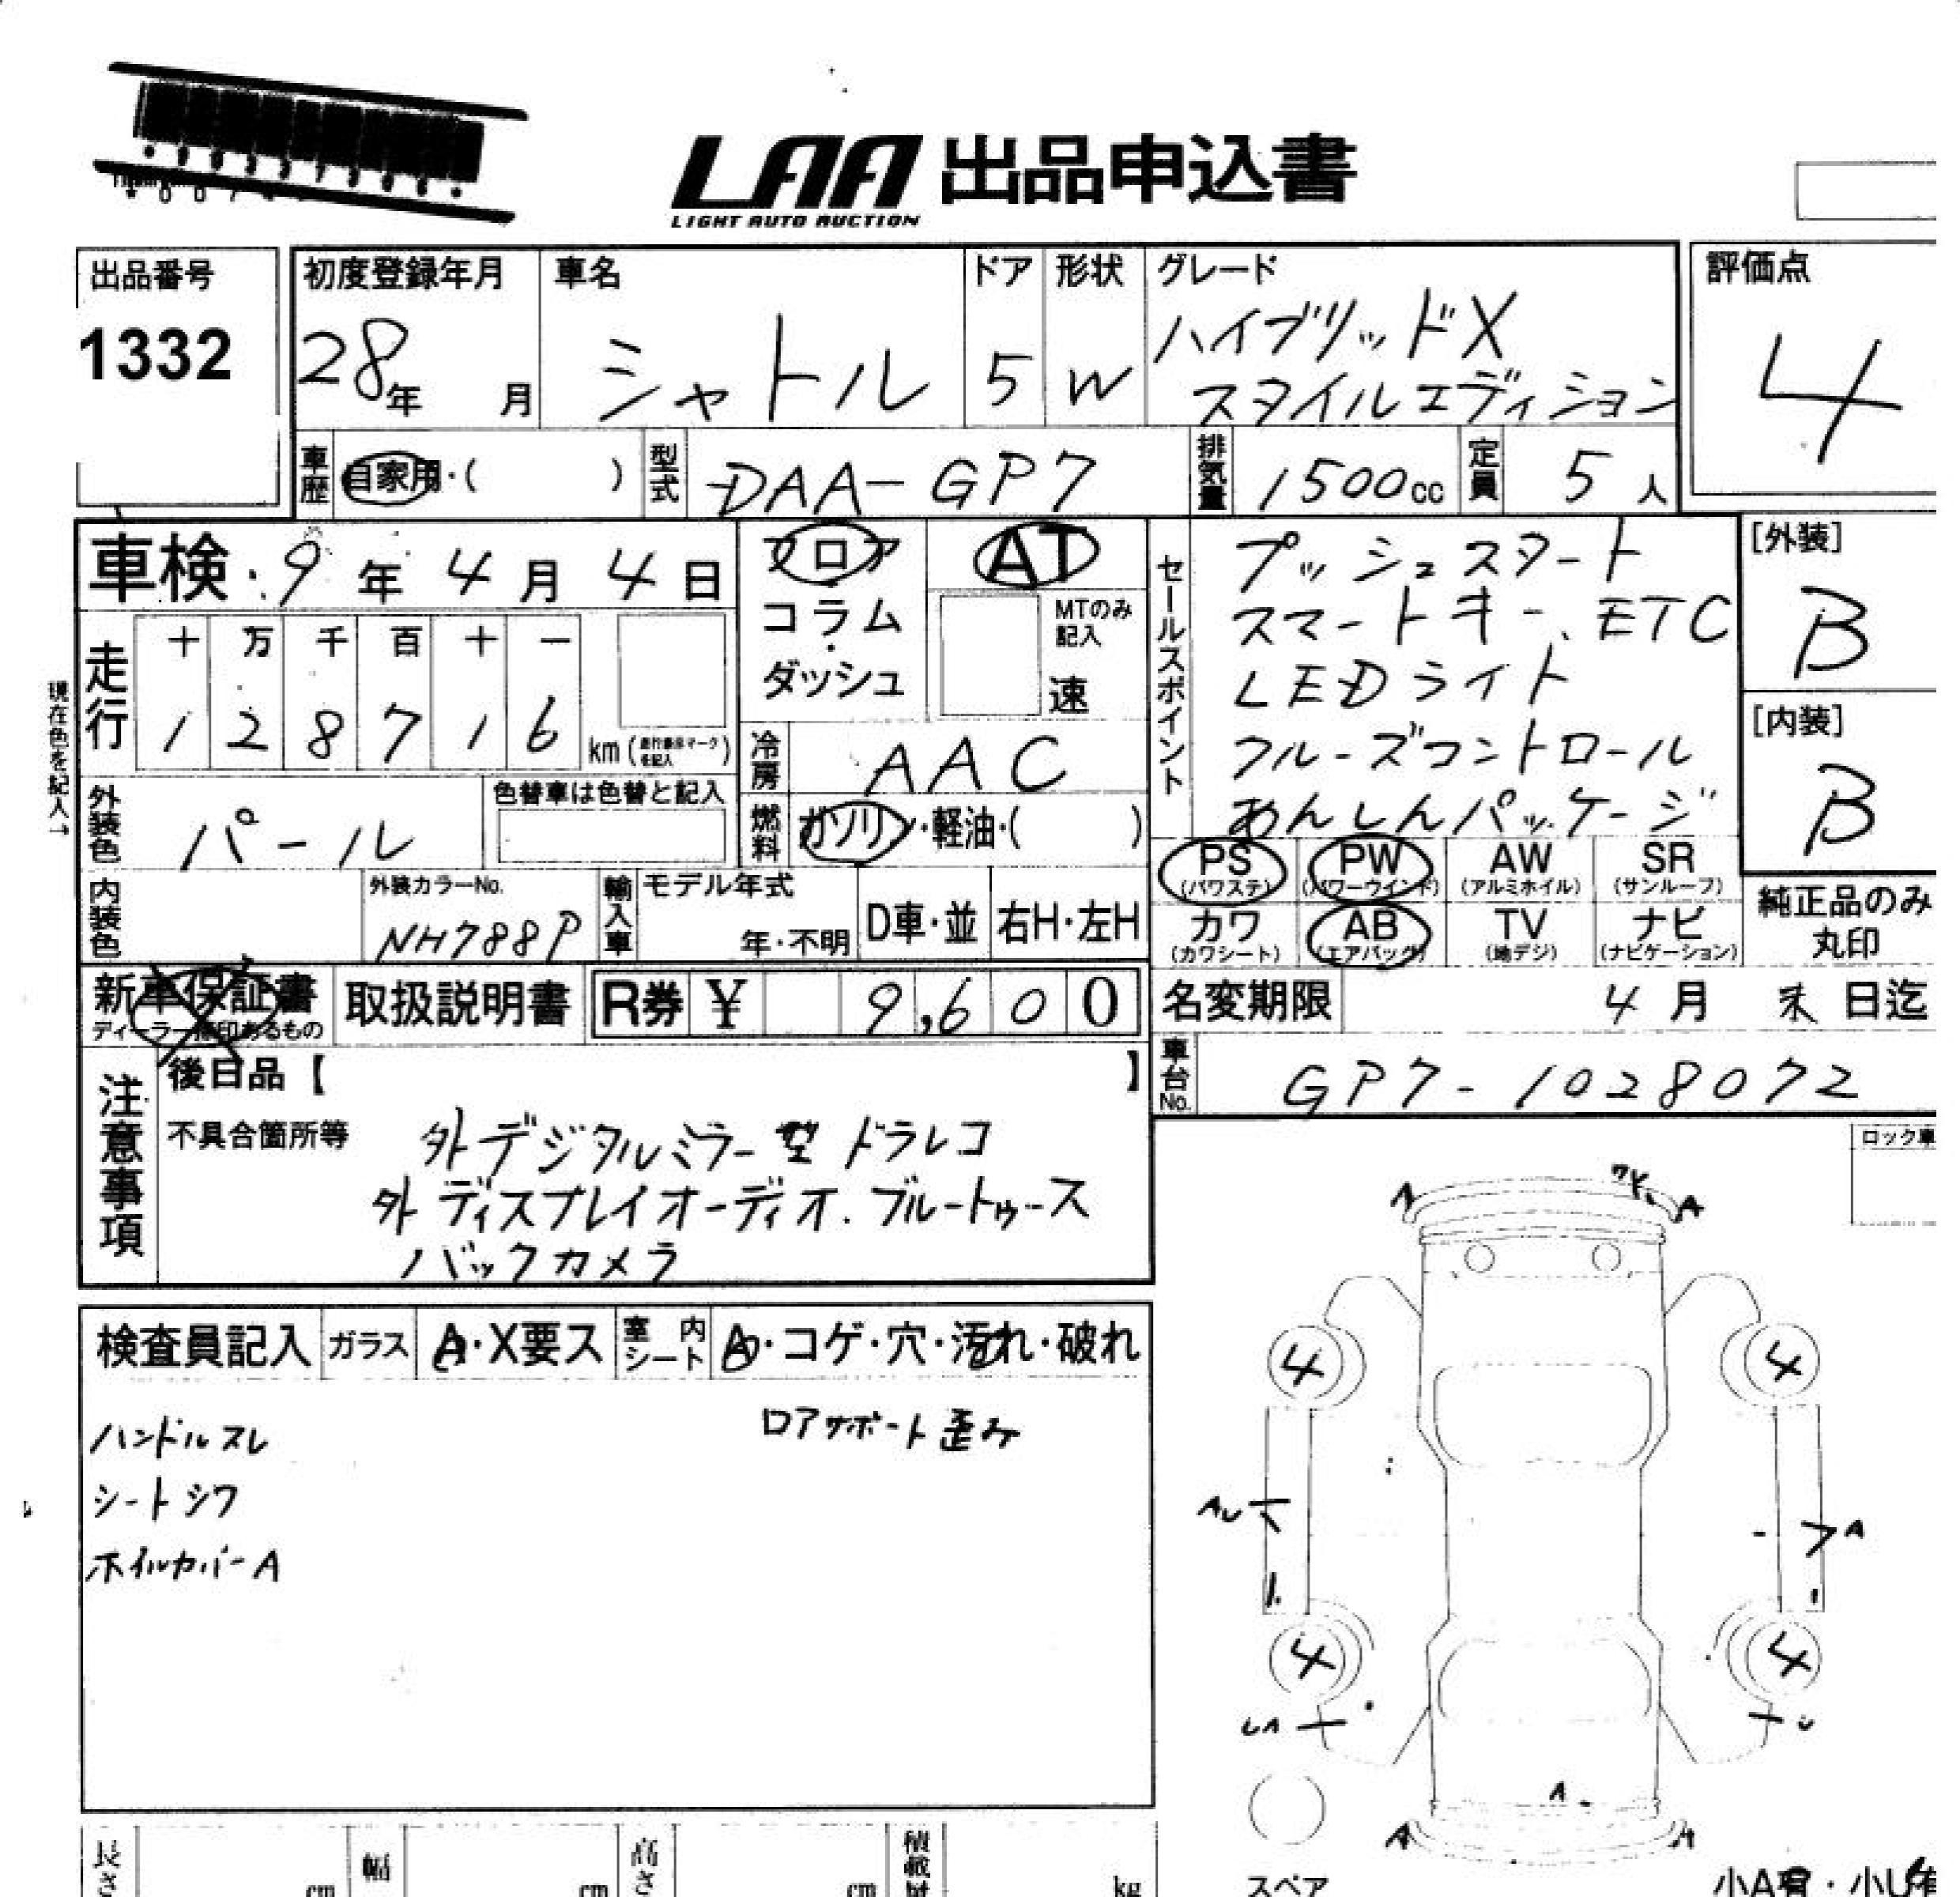 LAA 出品申込書
LIGHT AUTO AUCTION
出品番号
1332
初度登録年月
28年 月
車名
シャトル
ドア
5
形状
W
グレード
ハイブリッドX
スタイルエディション
評価点
4
車歴 自家用・( )
型式 DAA-GP7
排気量 1500cc
定員 5人
車検 9年 4月 4日
フロア
コラム
・
ダッシュ
AT
MTのみ
記入
速
現在色を記入→
走行
十 万 千 百 十 一
1 2 8 7 1 6 km
冷房 AAC
燃料 ガソリン・軽油・( )
外装色 パール
色替車は色替と記入
内装色
外装カラーNo.
NH788P
輸入車
モデル年式
年・不明
D車・並
右H・左H
セールスポイント
プッシュスタート
スマートキー、ETC
LEDライト
クルーズコントロール
あんしんパッケージ
[外装]
B
[内装]
B
PS
(パワステ)
PW
(パワーウインド)
AW
(アルミホイル)
SR
(サンルーフ)
カワ
(カワシート)
AB
(エアバック)
TV
(地デジ)
ナビ
(ナビゲーション)
純正品のみ
丸印
新車保証書
取扱説明書
R券 ¥ 9,600
名変期限 4月 末日迄
車台No. GP7-1028072
注意事項
後日品【 】
不具合箇所等
外デジタルミラー型ドラレコ
外ディスプレイオーディオ.ブルートゥース
バックカメラ
ロック車
検査員記入
ガラス A・X要ス
室内シート A・コゲ・穴・汚れ・破れ
ハンドルスレ
ロアサポート歪み
シートシワ
ホイルカバーA
A
A
4
4
AU
A
4
4
UA
U
A
A
A
スペア
長さ cm
幅 cm
高さ cm
積載量 kg
小A有・小U有